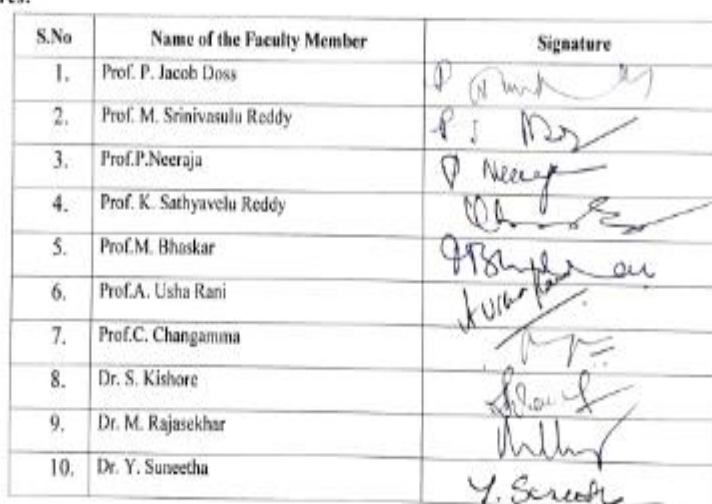 S.No Name of the Faculty Member Signature
1. Prof. P. Jacob Doss
2. Prof. M. Srinivasulu Reddy
3. Prof.P.Neeraja P Neeraja
4. Prof. K. Sathyavelu Reddy
5. Prof.M. Bhaskar
6. Prof.A. Usha Rani A Usha Rani
7. Prof.C. Changamma
8. Dr. S. Kishore
9. Dr. M. Rajasekhar
10. Dr. Y. Suneetha Y. Suneetha